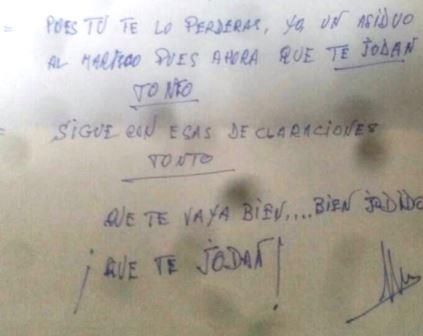 = PUES TU TE LO PERDERAS, YO, UN ASIDUO
AL MARISCO PUES AHORA QUE TE JODAN
TONTO
= SIGUE CON ESAS DECLARACIONES
TONTO
QUE TE VAYA BIEN,... BIEN JODIDO
¡QUE TE JODAN!